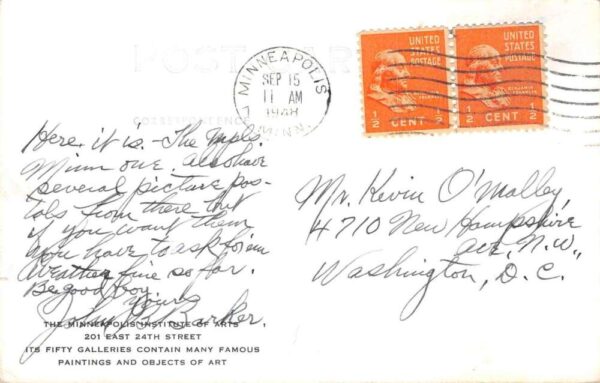 POST CARD
CORRESPONDENCE
MINNEAPOLIS
SEP 15
11 AM
1948
MINN.
UNITED STATES POSTAGE
BENJAMIN FRANKLIN
1/2 CENT 1/2
UNITED STATES POSTAGE
BENJAMIN FRANKLIN
1/2 CENT 1/2
Here it is. - The Mpls.
Minn one. Also have
several picture pos-
tals from there but
if you want them
you have to ask for em
Weather fine so far.
Be good boy.
Yours
John B Barker.
Mr. Kevin O'Malley
4710 New Hampshire
ave, N.W.,
Washington, D. C.
THE MINNEAPOLIS INSTITUTE OF ARTS
201 EAST 24TH STREET
ITS FIFTY GALLERIES CONTAIN MANY FAMOUS
PAINTINGS AND OBJECTS OF ART